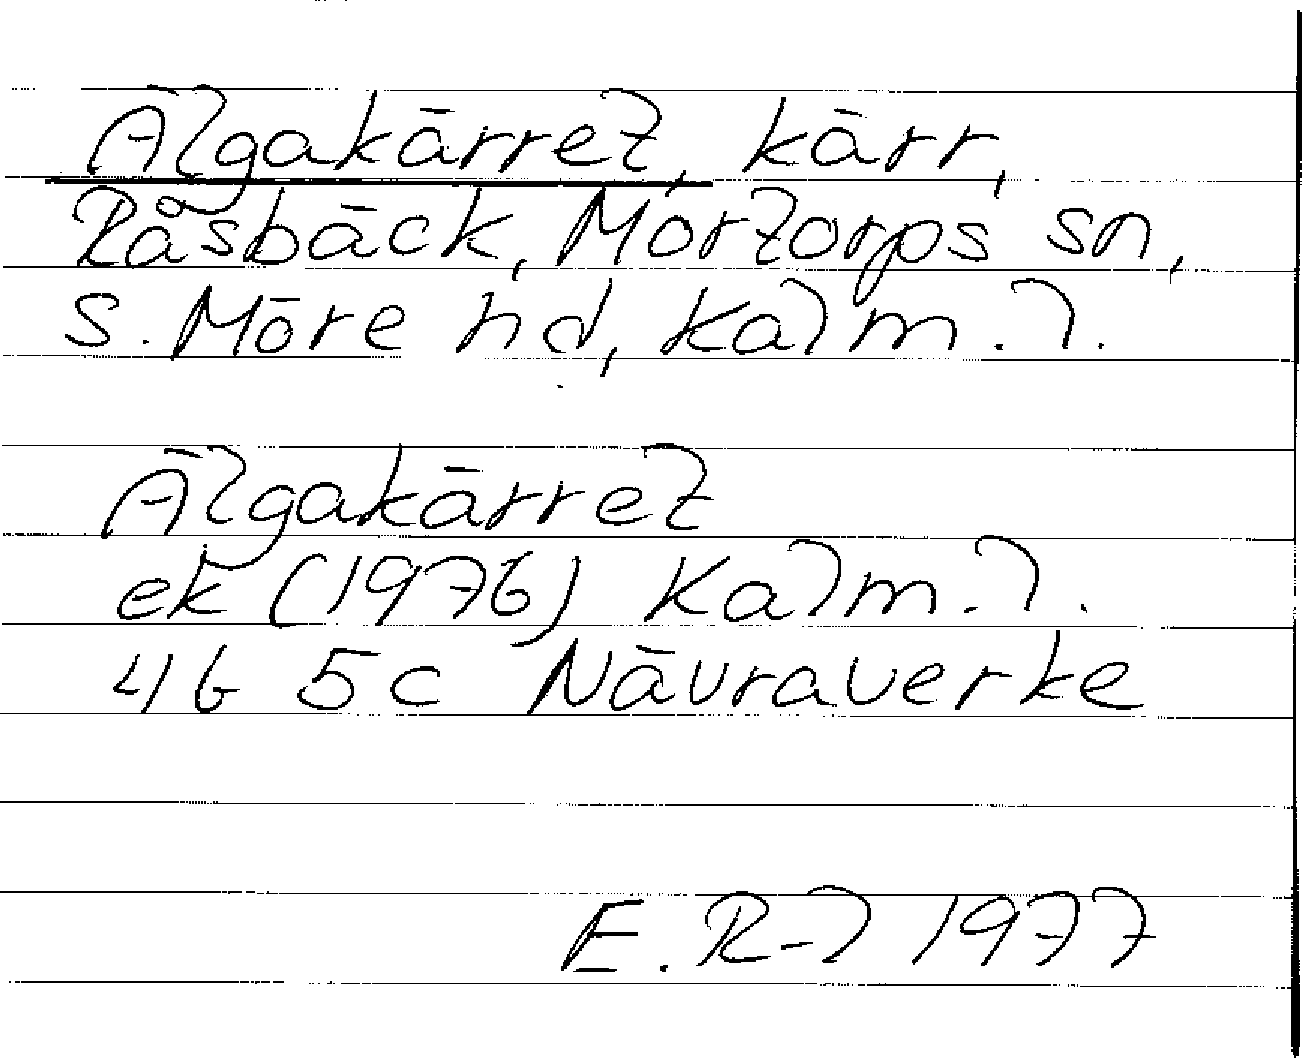 Älgakärret, kärr,
Råsbäck, Mortorps sn,
S. Möre hd, Kalm. l.
Älgakärret
ek (1976) Kalm. l.
4G 5c Nävraverke
E. R-l 1977